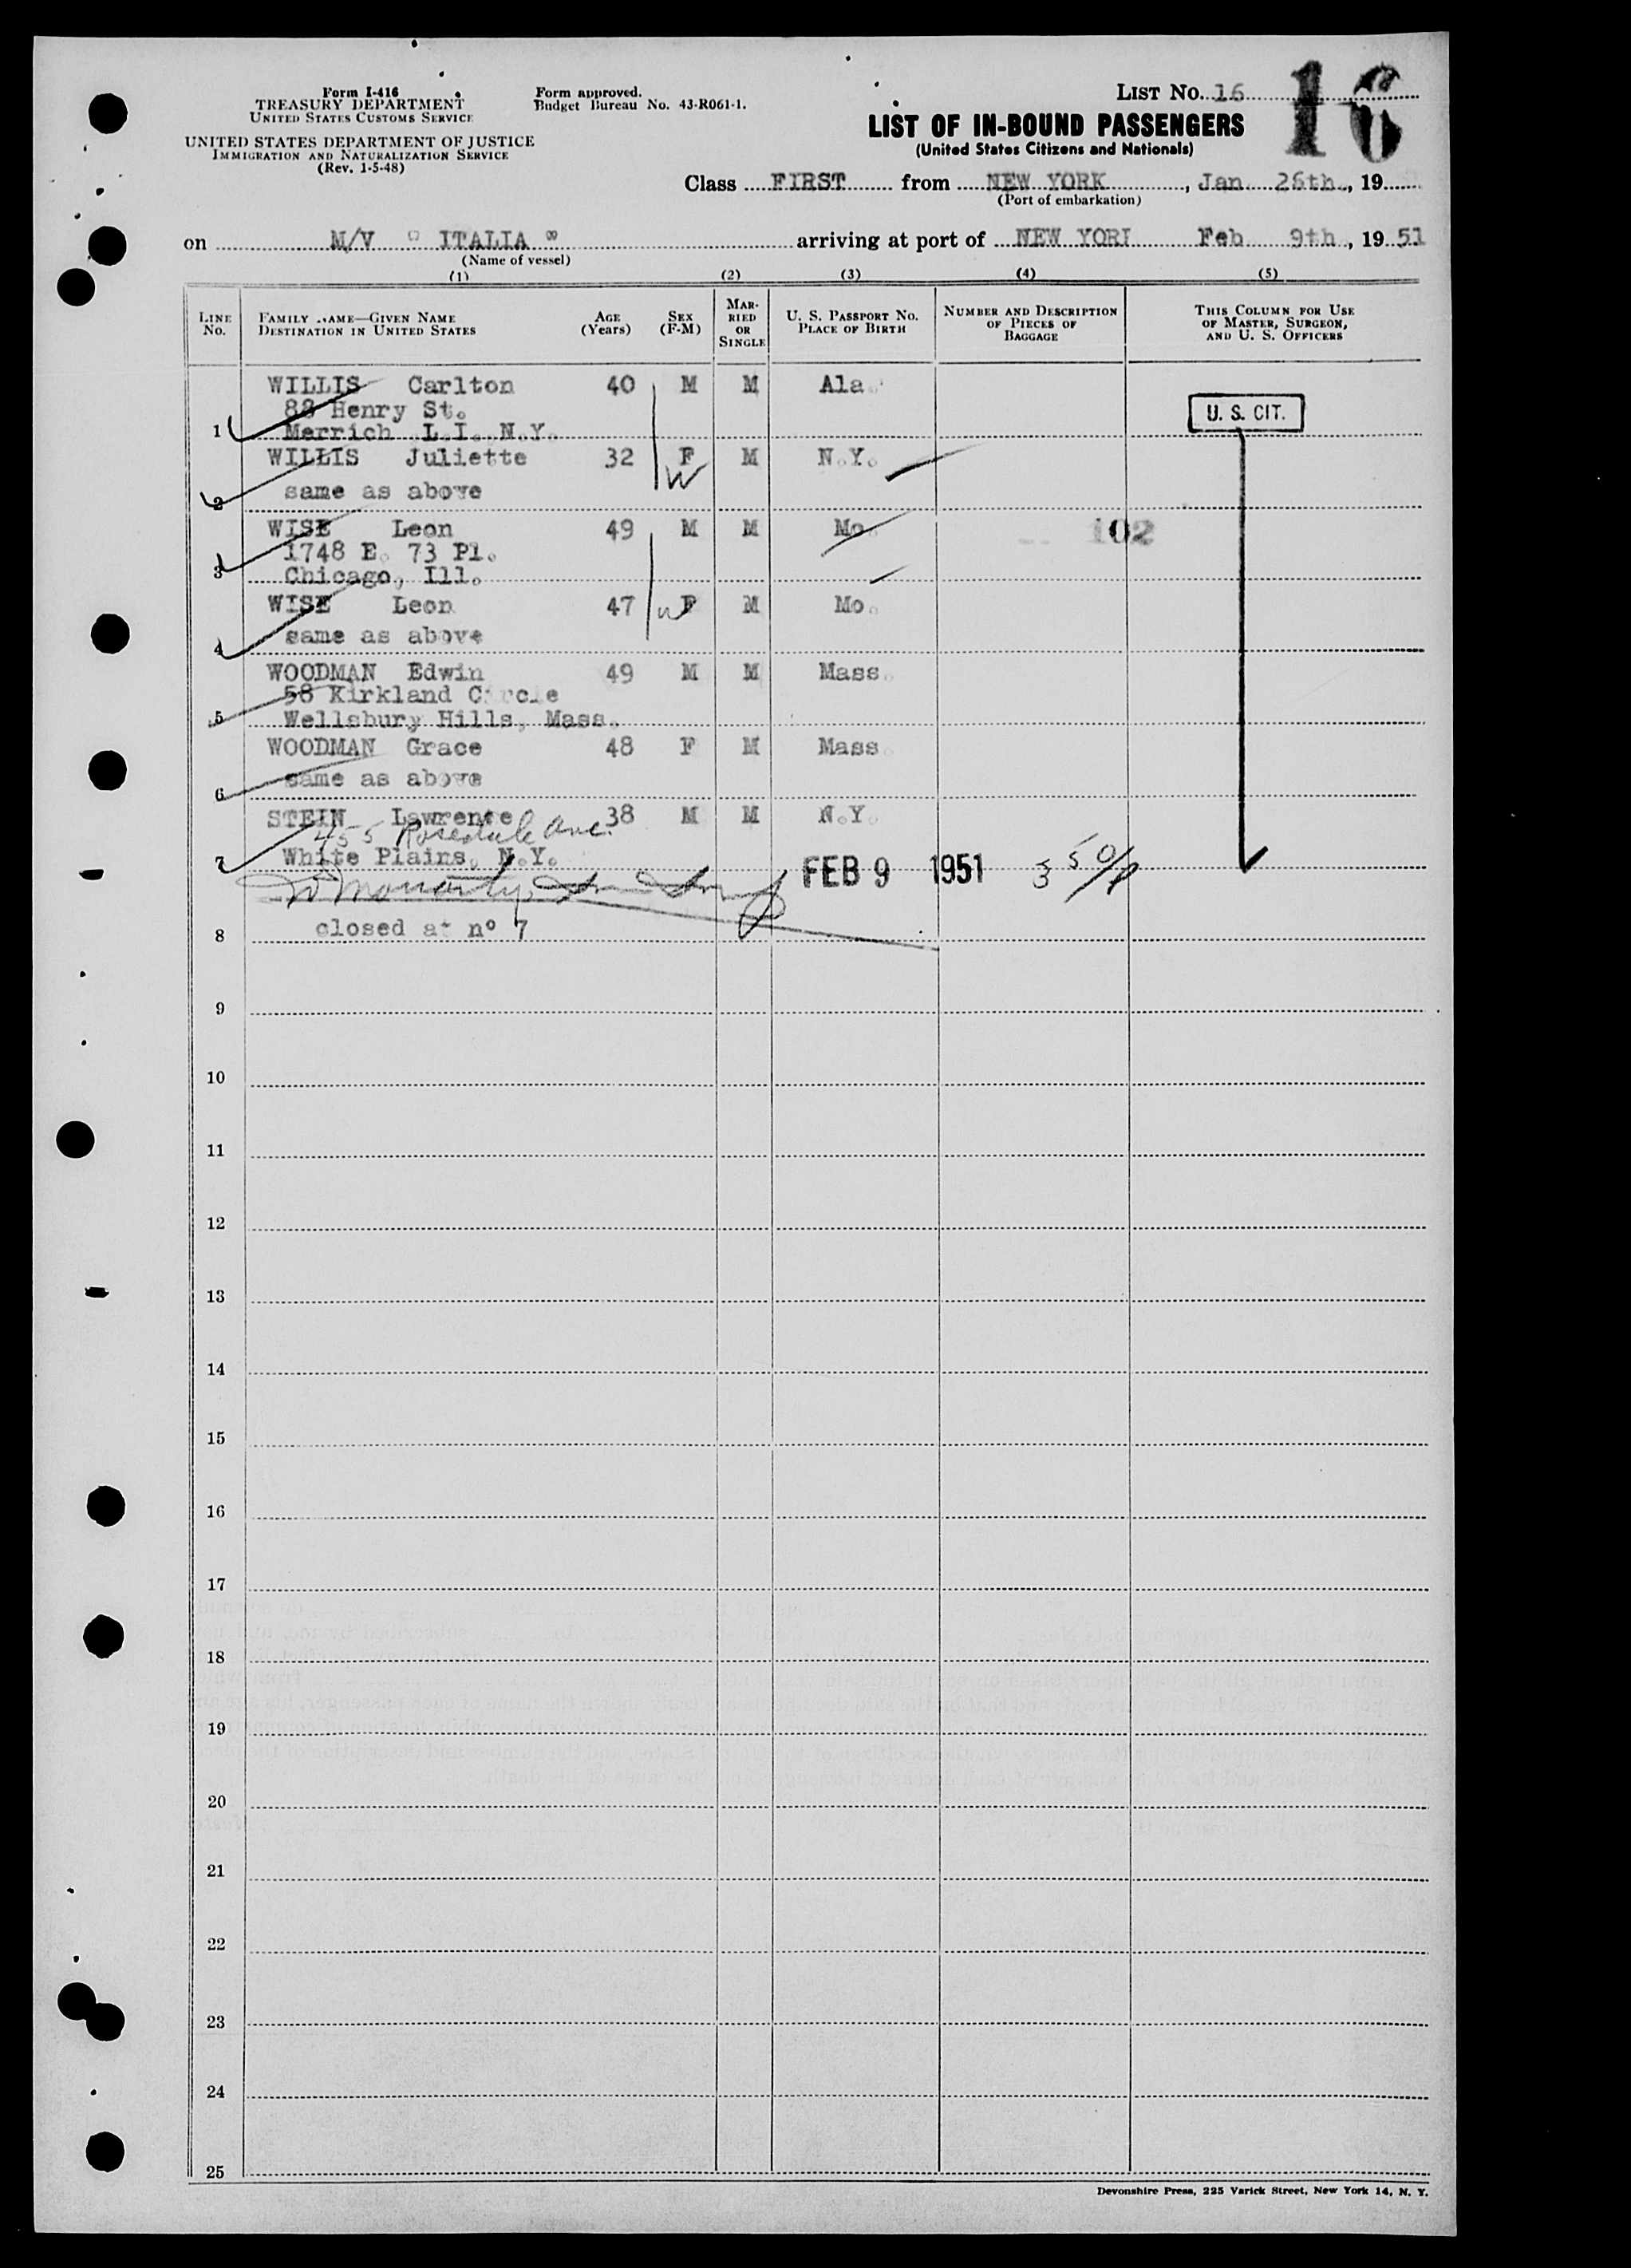 Form I-416
TREASURY DEPARTMENT
UNITED STATES CUSTOMS SERVICE
UNITED STATES DEPARTMENT OF JUSTICE
IMMIGRATION AND NATURALIZATION SERVICE
(Rev. 1-5-48)
Form approved.
Budget Bureau No. 43-R061-1.
LIST No. 16
16
LIST OF IN-BOUND PASSENGERS
(United States Citizens and Nationals)
Class FIRST from NEW YORK, Jan 26th, 19
(Port of embarkation)
on M/V " ITALIA " arriving at port of NEW YORK Feb 9th, 19 51
(Name of vessel)
(1) (2) (3) (4) (5)
LINE No. FAMILY NAME—GIVEN NAME DESTINATION IN UNITED STATES AGE (Years) SEX (F-M) MARRIED OR SINGLE U. S. PASSPORT NO. PLACE OF BIRTH NUMBER AND DESCRIPTION OF PIECES OF BAGGAGE THIS COLUMN FOR USE OF MASTER, SURGEON, AND U. S. OFFICERS
WILLIS Carlton 40 M M Ala.
88 Henry St. U. S. CIT.
1 Merrich L.I. N.Y.
WILLIS Juliette 32 F M N.Y.
W
2 same as above
WISE Leon 49 M M Mo. 102
1748 E. 73 Pl.
3 Chicago, Ill.
WISE Leon 47 W F M Mo.
4 same as above
WOODMAN Edwin 49 M M Mass.
58 Kirkland Circle
5 Wellsbury Hills, Mass.
WOODMAN Grace 48 F M Mass.
6 same as above
STEIN Lawrence 38 M M N.Y.
455 Rosedale Ave.
7 White Plains, N.Y.
FEB 9 1951
8 closed at nº 7
9
10
11
12
13
14
15
16
17
18
19
20
21
22
23
24
25
Devonshire Press, 225 Varick Street, New York 14, N. Y.